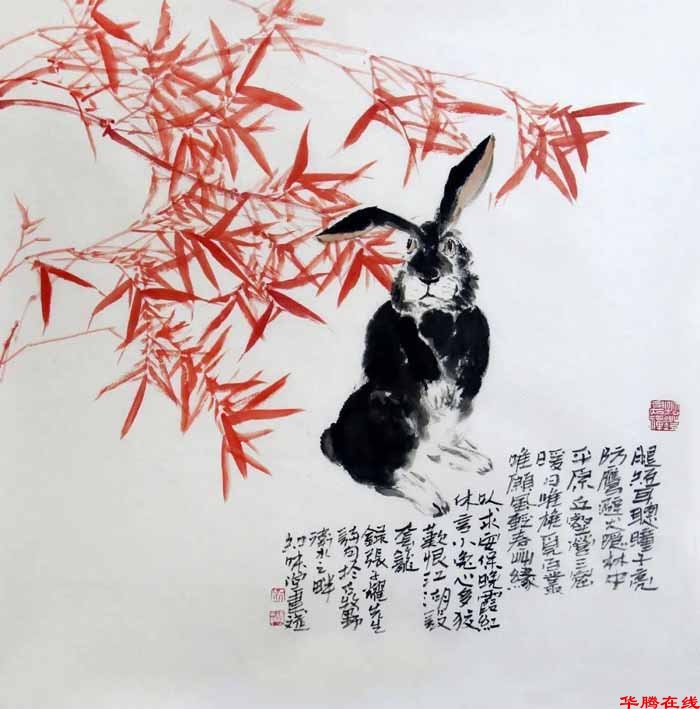 腿短耳聰瞳子亮
防鷹避犬隱林中
平原丘壑營三窟
暖日唯 覓百叢
唯願風輕春草綠
以求安保晚霞紅
休言小兔心多狡
歎恨江湖設
套籠
錄張子耀先生
詩句於古牧野
衛水之畔
如味堂畫
华腾在线